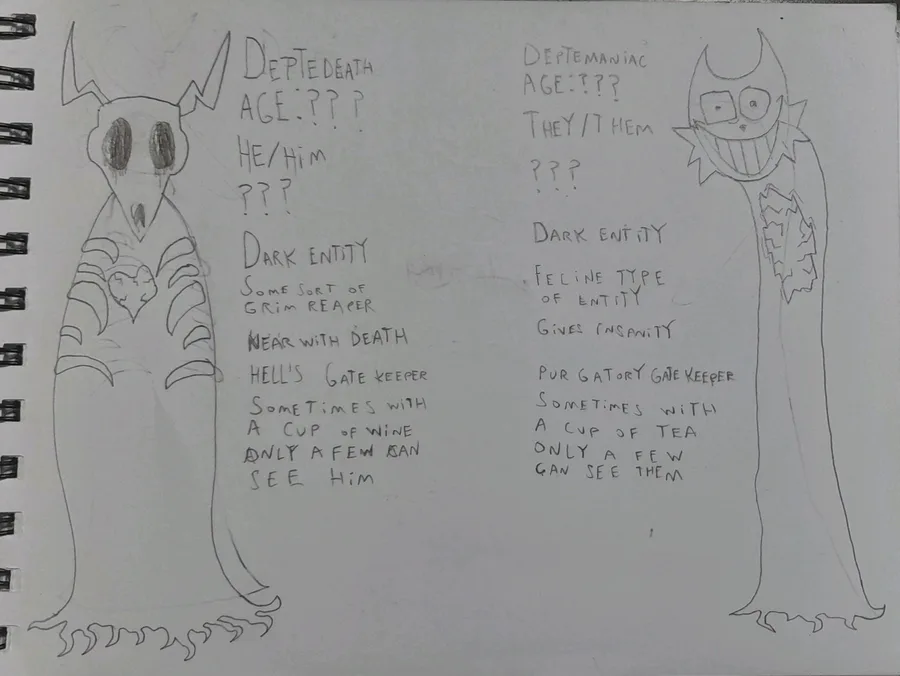 DEPTEDEATH
AGE:???
HE/HiM
???
DARK ENTITY
SOME SORT OF
GRiM REAPER
NEAR WITH DEATH
HELL'S GATE KEEPER
SOMETIMES WITH
A CUP OF WINE
ONLY A FEW CAN
SEE HiM
DEPTEMANIAC
AGE:???
THEY/THEM
???
DARK ENTITY
FELINE TYPE
OF ENTITY
GIVES INSANITY
PURGATORY GATE KEEPER
SOMETIMES WITH
A CUP OF TEA
ONLY A FEW
CAN SEE THEM